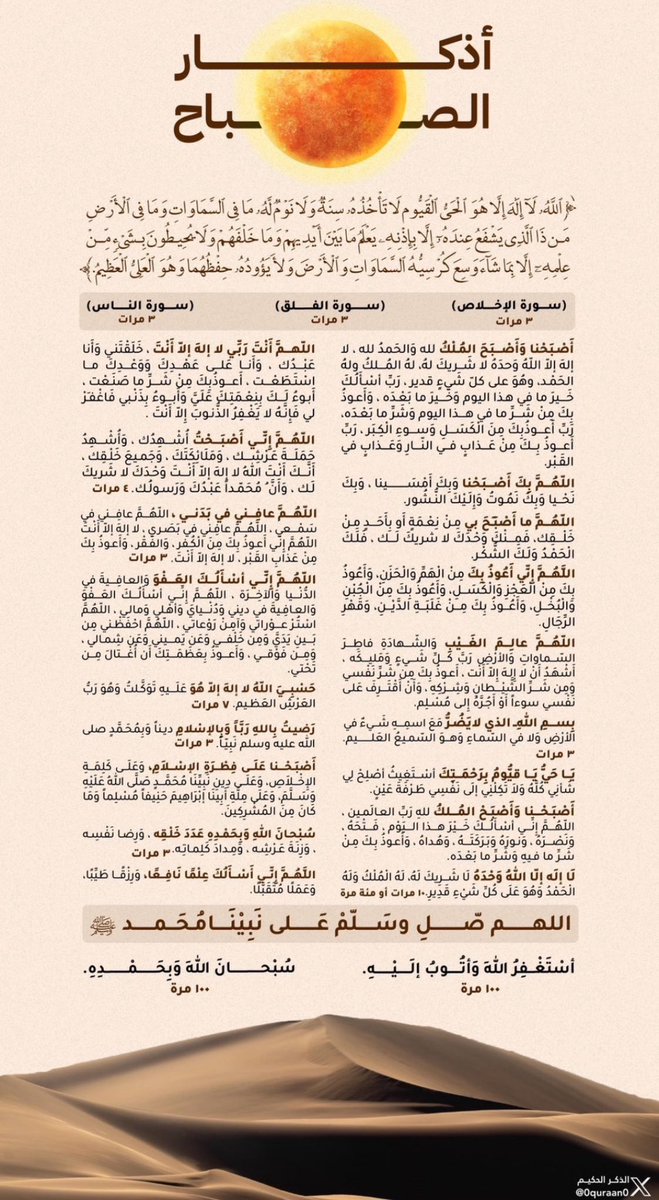 أذكــــار
الصـــباح
﴿ٱللَّهُ لَآ إِلَٰهَ إِلَّا هُوَ ٱلْحَىُّ ٱلْقَيُّومُ لَا تَأْخُذُهُۥ سِنَةٌ وَلَا نَوْمٌ لَّهُۥ مَا فِى ٱلسَّمَاوَاتِ وَمَا فِى ٱلْأَرْضِ
مَن ذَا ٱلَّذِى يَشْفَعُ عِندَهُۥٓ إِلَّا بِإِذْنِهِۦ يَعْلَمُ مَا بَيْنَ أَيْدِيهِمْ وَمَا خَلْفَهُمْ وَلَا يُحِيطُونَ بِشَىْءٍ مِّنْ
عِلْمِهِۦٓ إِلَّا بِمَا شَآءَ وَسِعَ كُرْسِيُّهُ ٱلسَّمَاوَاتِ وَٱلْأَرْضَ وَلَا يَـُٔودُهُۥ حِفْظُهُمَا وَهُوَ ٱلْعَلِىُّ ٱلْعَظِيمُ.﴾
(ســورة الإخــلاص) (ســورة الفــلق) (ســورة النــاس)
٣ مرات ٣ مرات ٣ مرات
أَصْبَحْنا وَأَصْبَحَ المُلْكُ لله وَالحَمدُ لله ، لا
إلهَ إلاّ اللّهُ وَحدَهُ لا شَريكَ لهُ، لهُ المُلكُ ولهُ
الحَمْد، وهُوَ على كلّ شَيءٍ قدير ، رَبِّ أسْألُكَ
خَيرَ ما في هذا اليوم وَخَيرَ ما بَعْدَه ، وَأَعوذُ
بِكَ مِنْ شَرِّ ما في هـذا اليوم وَشَرِّ ما بَعْدَه،
رَبِّ أَعوذُبِكَ مِنَ الْكَسَلِ وَسوءِ الْكِبَر ، رَبِّ
أَعوذُ بِكَ مِنْ عَذابٍ في النّارِ وَعَذابٍ في
القَبْر.
اللّهُمَّ بِكَ أَصْبَحْنا وَبِكَ أَمْسَـيـنا ، وَبِكَ
نَحْيا وَبِكَ نَمُوتُ وَإِلَيْكَ النُّشُور.
اللّهُمَّ ما أَصْبَحَ بي مِنْ نِعْمَةٍ أَو بِأَحَدٍ مِنْ
خَلْقِك، فَمِنْكَ وَحْدَكَ لا شريكَ لَك ، فَلَكَ
الْحَمْدُ وَلَكَ الشُّكْر.
اللَّهُمَّ إِنِّي أَعُوذُ بِكَ مِنْ الْهَمِّ وَالْحَزَنِ، وَأَعُوذُ
بِكَ مِنْ الْعَجْزِ وَالْكَسَلِ، وَأَعُوذُ بِكَ مِنْ الْجُبْنِ
وَالْبُخْلِ، وَأَعُوذُ بِكَ مِنْ غَلَبَةِ الدَّيْنِ، وَقَهْرِ
الرِّجَالِ.
اللّهُمَّ عالِمَ الغَيْبِ وَالشَّهادَةِ فاطِرَ
السّماواتِ وَالأرْضِ رَبَّ كلِّ شَيءٍ وَمَليكَه ،
أَشْهَدُ أَنْ لا إِلهَ إِلاّ أَنْت ، أَعوذُ بِكَ مِن شَرِّ نَفْسي
وَمِن شَرِّ الشَّيْطانِ وَشِرْكِه ، وَأَنْ أَقْتَرِفَ عَلى
نَفْسي سوءاً أَوْ أَجُرَّهُ إِلى مُسْلِم.
بِسمِ اللهِ الذي لا يَضُرُّ مَعَ اسمِهِ شَيءٌ في
الأرْضِ وَلا في السّماءِ وَهوَ السّميعُ العَليم.
٣ مرات
يَا حَيُّ يَا قيُّومُ بِرَحْمَتِكَ أستَغِيثُ أصْلِحْ لِي
شَأنِي كُلَّهُ وَلاَ تَكِلْنِي إلَى نَفْسِي طَرْفَةَ عَيْنٍ.
أَصْبَحْنا وَأَصْبَحَ المُلكُ للهِ رَبِّ العالَمين ،
اللّهُمَّ إِنّي أسْألُكَ خَيْرَ هذا اليَوْم ، فَتْحَهُ ،
وَنَصْرَهُ ، وَنورَهُ وَبَرَكَتَهُ ، وَهُداهُ ، وَأَعوذُ بِكَ مِنْ
شَرِّ ما فيهِ وَشَرِّ ما بَعْدَه.
لَا إلَه إلّا اللهُ وَحْدَهُ لَا شَرِيكَ لَهُ، لَهُ الْمُلْكُ وَلَهُ
الْحَمْدُ وَهُوَ عَلَى كُلِّ شَيْءٍ قَدِيرِ. ١٠ مرات أو مئة مرة
اللّهُمَّ أَنْتَ رَبِّي لا إلهَ إلاّ أَنْتَ ، خَلَقْتَني وَأَنا
عَبْدُك ، وَأَنا عَلى عَهْدِكَ وَوَعْدِكَ ما
اسْتَطَعْت ، أَعوذُبِكَ مِنْ شَرِّ ما صَنَعْت ،
أَبوءُ لَكَ بِنِعْمَتِكَ عَلَيَّ وَأَبوءُ بِذَنْبي فَاغْفِرْ
لي فَإِنَّهُ لا يَغْفِرُ الذُّنوبَ إِلاّ أَنْتَ .
اللّهُمَّ إِنِّي أَصْبَحْتُ أُشْهِدُك ، وَأُشْهِدُ
حَمَلَةَ عَرْشِك ، وَمَلَائكَتَكَ ، وَجَميعَ خَلْقِك ،
أَنَّكَ أَنْتَ اللهُ لا إلهَ إلاّ أَنْتَ وَحْدَكَ لا شَريكَ
لَك ، وَأَنَّ مُحَمّداً عَبْدُكَ وَرَسولُك. ٤ مرات
اللّهُمَّ عافِني في بَدَني ، اللّهُمَّ عافِني في
سَمْعي ، اللّهُمَّ عافِني في بَصَري ، لا إلهَ إلاّ أَنْتَ
اللّهُمَّ إِنّي أَعوذُ بِكَ مِنَ الْكُفر، وَالفَقْر، وَأَعوذُ بِكَ
مِنْ عَذابِ القَبْر ، لا إلهَ إلاّ أَنْتَ. ٣ مرات
اللّهُمَّ إِنِّي أسْألُكَ العَفْوَ وَالعافِيةَ في
الدُّنْيا وَالآخِرَة ، اللّهُمَّ إِنّي أسْألُكَ العَفْوَ
وَالعافِيةَ في ديني وَدُنْيايَ وَأهْلي وَمالي ، اللّهُمَّ
اسْتُرْ عوْراتي وَآمِنْ رَوْعاتي ، اللّهُمَّ احْفَظْني مِن
بَينِ يَدَيَّ وَمِن خَلْفي وَعَن يَميني وَعَن شِمالي ،
وَمِن فَوْقي ، وَأَعوذُ بِعَظَمَتِكَ أَن أُغْتالَ مِن
تَحْتي.
حَسْبِيَ اللّهُ لا إلهَ إلاّ هُوَ عَلَيهِ تَوَكَّلتُ وَهُوَ رَبُّ
العَرْشِ العَظيم. ٧ مرات
رَضيتُ بِاللهِ رَبًّا وَبِالإسْلامِ ديناً وَبِمُحَمَّدٍ صلى
الله عليه وسلم نَبِيّاً. ٣ مرات
أَصْبَحْنا عَلَى فِطْرَةِ الإسْلاَمِ، وَعَلَى كَلِمَةِ
الإِخْلاَصِ، وَعَلَى دِينِ نَبِيِّنَا مُحَمَّدٍ صَلَّى اللهُ عَلَيْهِ
وَسَلَّمَ، وَعَلَى مِلَّةِ أَبِينَا إبْرَاهِيمَ حَنِيفاً مُسْلِماً وَمَا
كَانَ مِنَ المُشْرِكِينَ.
سُبْحانَ اللهِ وَبِحَمْدِهِ عَدَدَ خَلْقِه ، وَرِضا نَفْسِه
، وَزِنَةَ عَرْشِه ، وَمِدادَ كَلِماتِه. ٣ مرات
اللَّهُمَّ إِنِّي أَسْأَلُكَ عِلْمًا نَافِعًا، وَرِزْقًا طَيِّبًا،
وَعَمَلًا مُتَقَبَّلًا.
اللهــم صّــلِ وسَــلّمْ عَــلى نَبِيْنَــا مُحَــمــد ﷺ
أسْتَغْفِرُ اللهَ وَأتُــوبُ إلَيْــهِ. سُبْحــانَ اللهَ وَبِحَمْــدِهِ.
١٠٠ مرة ١٠٠ مرة
الذكر الحكيم
@0quraan0